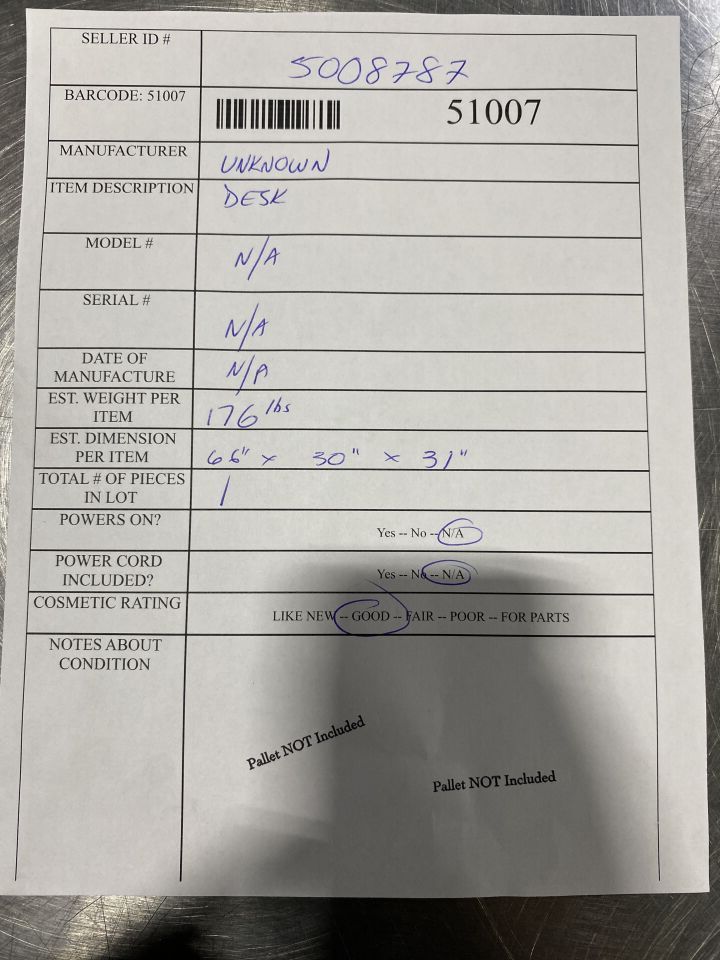 SELLER ID # 5008787
BARCODE: 51007 51007
MANUFACTURER UNKNOWN
ITEM DESCRIPTION DESK
MODEL # N/A
SERIAL # N/A
DATE OF
MANUFACTURE N/A
EST. WEIGHT PER
ITEM 176 lbs
EST. DIMENSION
PER ITEM 66" x 30" x 31"
TOTAL # OF PIECES
IN LOT 1
POWERS ON? Yes -- No -- N/A
POWER CORD
INCLUDED? Yes -- No -- N/A
COSMETIC RATING LIKE NEW -- GOOD -- FAIR -- POOR -- FOR PARTS
NOTES ABOUT
CONDITION
Pallet NOT Included
Pallet NOT Included